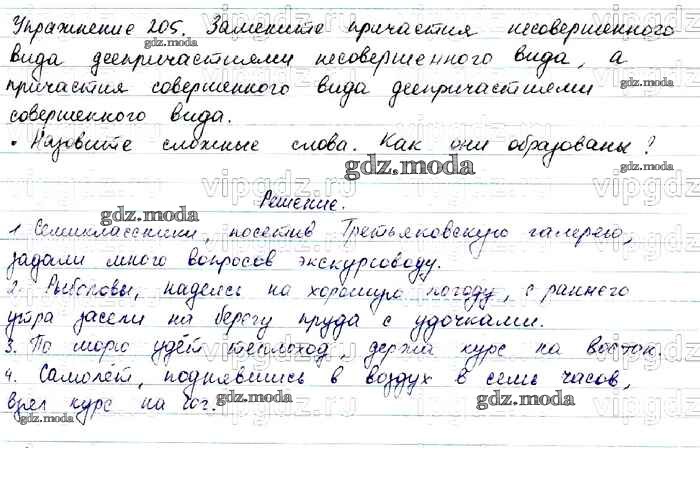 Упражнение 205. Замените причастия несовершенного
вида деепричастиями несовершенного вида, а
причастия совершенного вида деепричастиями
совершенного вида.
• Назовите сложные слова. Как они образованы?
Решение.
1. Семиклассники, посетив Третьяковскую галерею,
задали много вопросов экскурсоводу.
2. Рыболовы, надеясь на хорошую погоду, с раннего
утра засели на берегу пруда с удочками.
3. По морю идёт теплоход, держа курс на восток.
4. Самолёт, поднявшись в воздух в семь часов,
взял курс на юг.
gdz.moda
gdz.moda
gdz.moda
gdz.moda
gdz.moda
gdz.moda
gdz.moda
gdz.moda
gdz.moda
vipgdz.ru